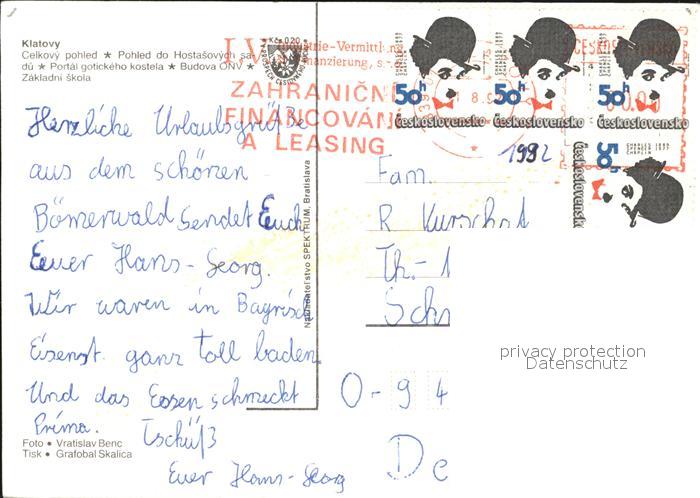 Klatovy
Celkový pohled ★ Pohled do Hostašových sa-
dů ★ Portál gotického kostela ★ Budova ONV ★
Základní škola
Kčs 0,20
Herzliche Urlaubsgrüße
aus dem schönen
Bömerwald sendet Euch
Euer Hans-Georg.
Wir waren in Bayrisch
Eisenst. ganz toll baden
Und das Essen schmeckt
Prima.
Tschüß
Euer Hans-Georg
Foto • Vratislav Benc
Tisk • Grafobal Skalica
Nakladateľstvo SPEKTRUM, Bratislava
ZAHRANIČNÍ
FINANCOVÁNÍ
A LEASING
50h
Československo
50h
Československo
50h
Československo
50h
Československo
1992
Fam.
R. Kurscha
Th.-
Sch
O-94
De
privacy protection
Datenschutz